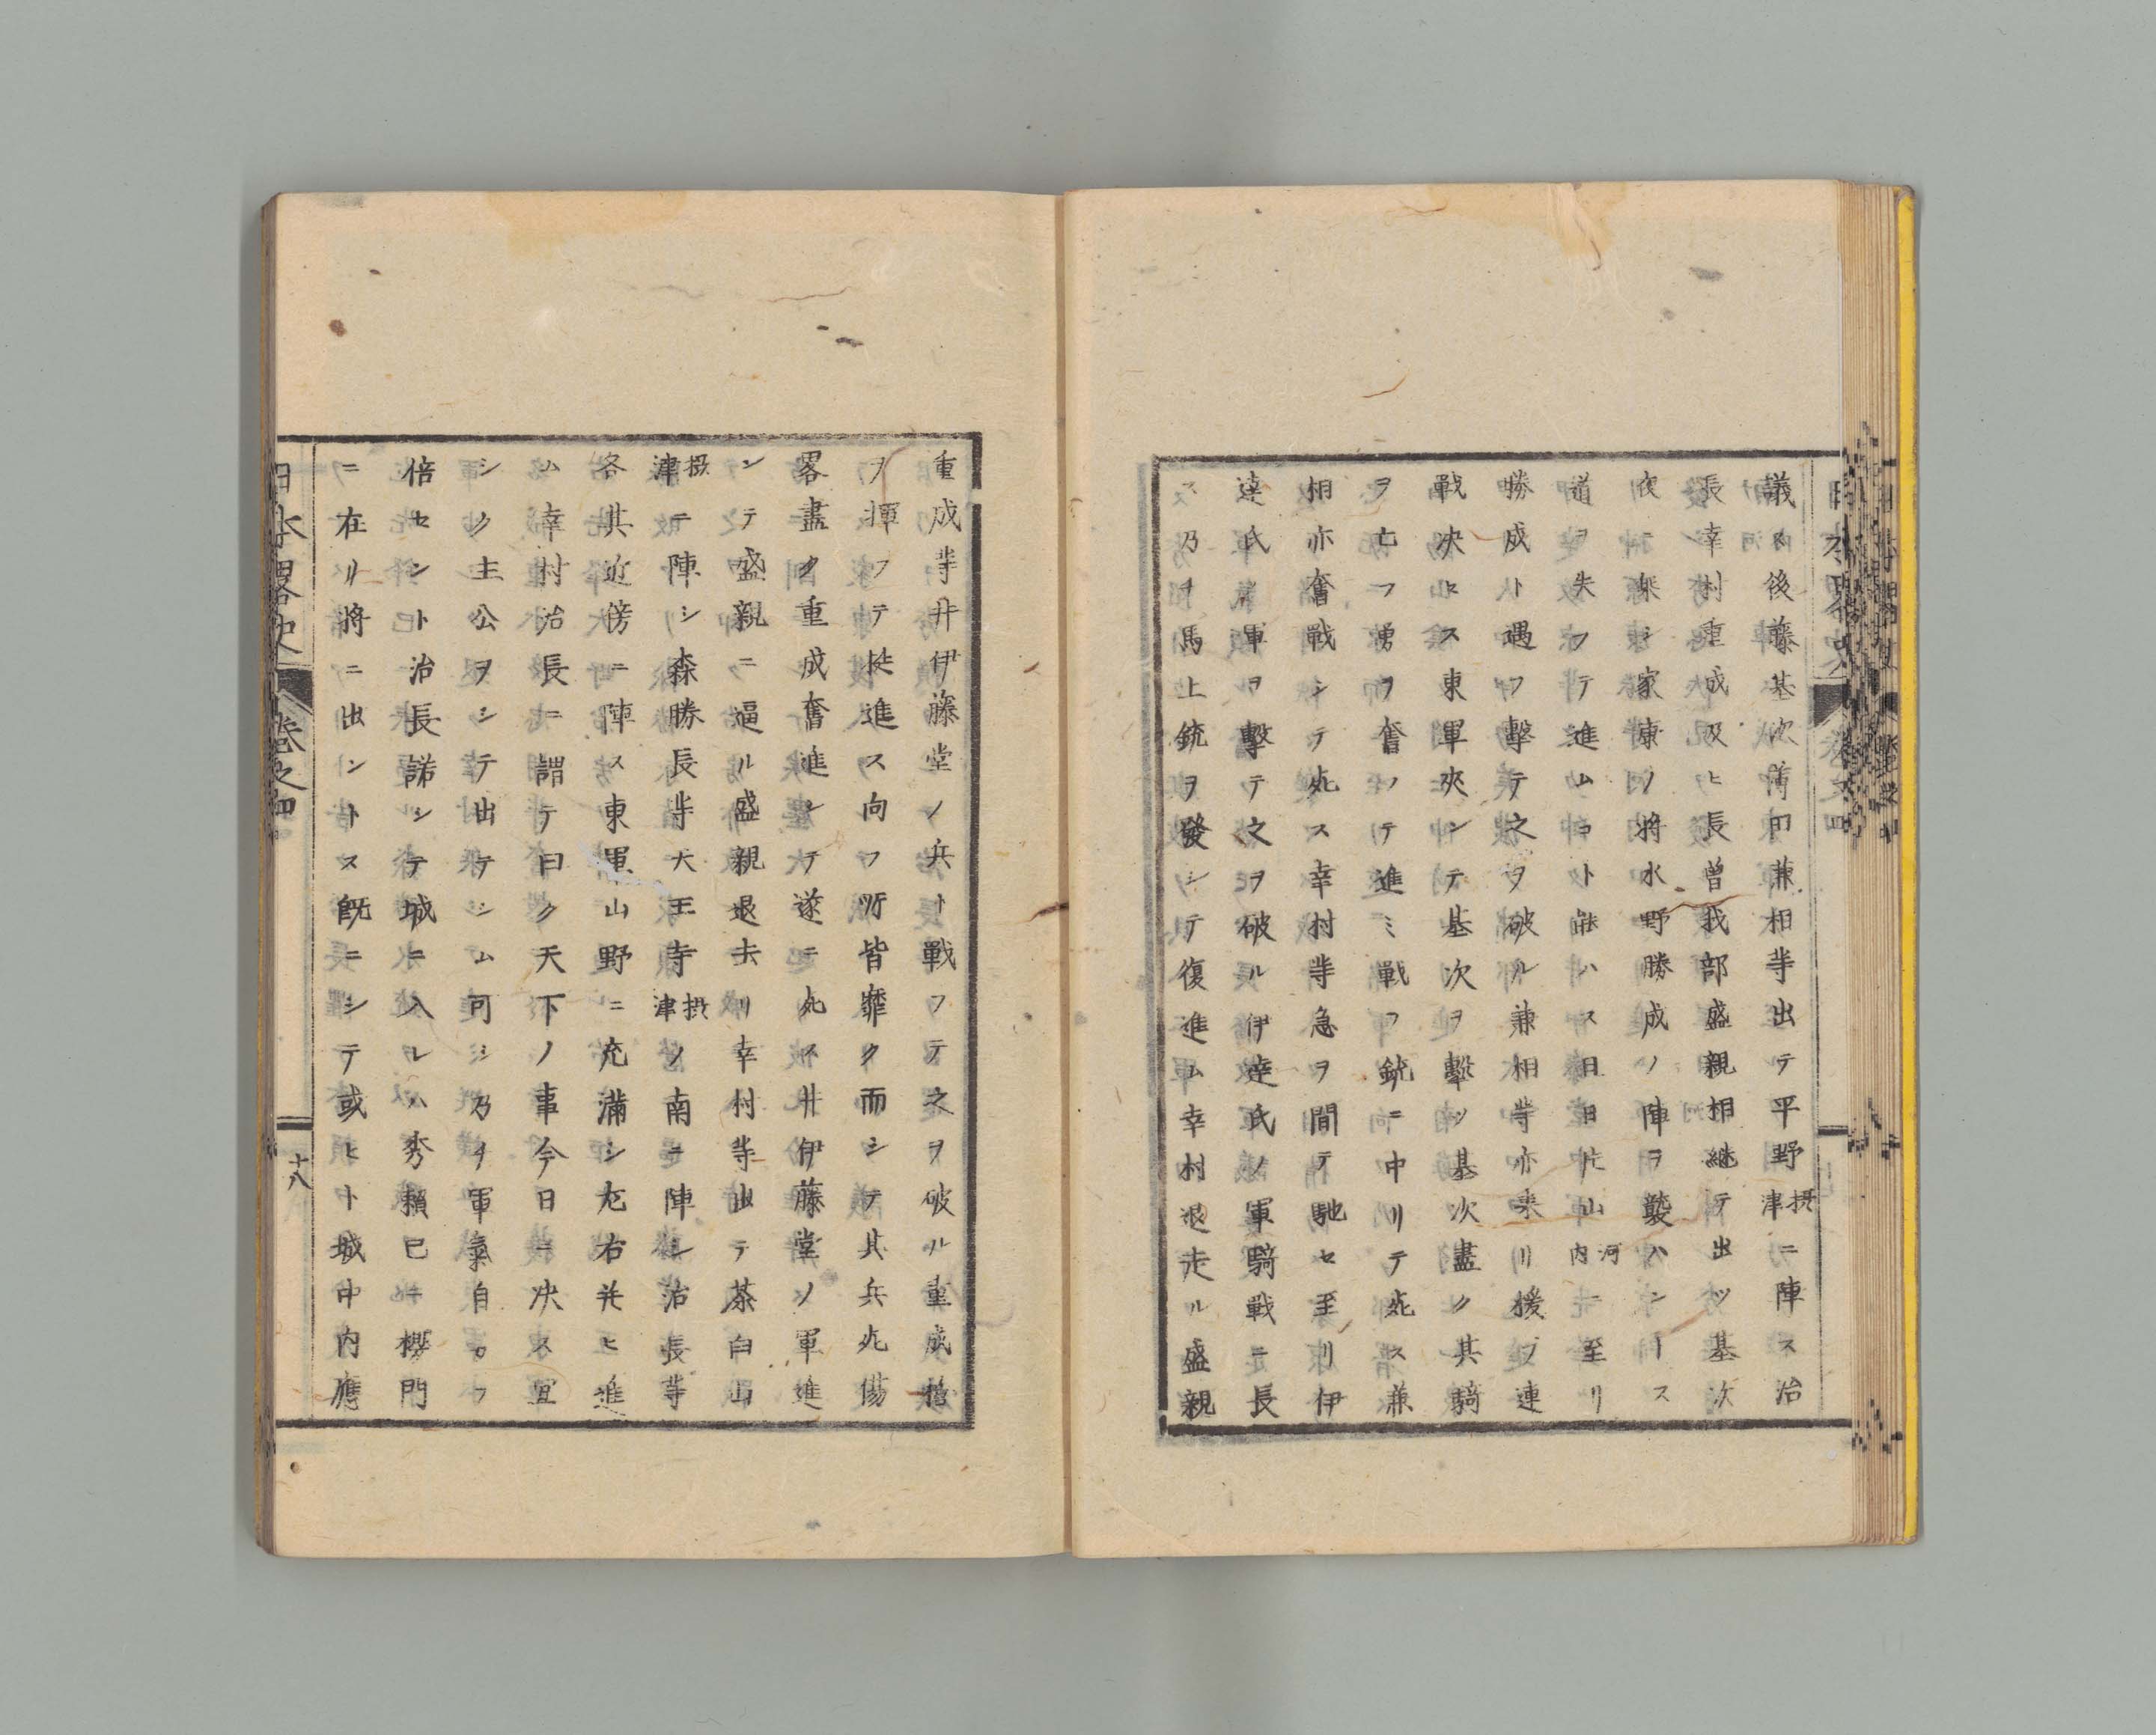 議ス後藤基次薄田兼相等出テ平野摂津ニ陣ス治
長幸村重成及ヒ長曽我部盛親相継テ出ツ基次
夜ニ乗シ家康ノ将水野勝成ノ陣ヲ襲ハントス
道ヲ失フテ進ムコト能ハス旦日片山河内ニ至リ
勝成ト遇フ撃テ之ヲ破ル兼相等亦来リ援ク連
戦決セス東軍夾ンテ基次ヲ撃ツ基次盡ク其騎
ヲ亡フ勇ヲ奮フテ進ミ戦フ銃ニ中リテ死ス兼
相亦奮戦シテ死ス幸村等急ヲ聞テ馳セ至リ伊
達氏ノ軍ヲ撃テ之ヲ破ル伊達氏ノ軍騎戦ニ長
ス乃チ馬上銃ヲ發シテ復進ム幸村退走ル盛親
重成等井伊藤堂ノ兵ト戦フテ之ヲ破ル重成槍
ヲ揮フテ挺進ス向フ所皆靡ク而シテ其兵死傷
畧盡ク重成奮進シテ遂テ死ス井伊藤堂ノ軍進
ンテ盛親ニ逼ル盛親退去リ幸村等出テ茶臼山
摂津ニ陣シ森勝長等天王寺摂津ノ南ニ陣シ治長等
各其近傍ニ陣ス東軍山野ニ充満シ左右并ヒ進
ム幸村治長ニ謂テ曰ク天下ノ事今日ニ決ス宜
シク主公ヲシテ出テシム可シ乃チ軍氣自カラ
倍セント治長諾シテ城ニ入レハ秀頼已ニ櫻門
ニ在リ将ニ出ントス既ニシテ或ヒト城中内應
日本畧史 巻之四 十八